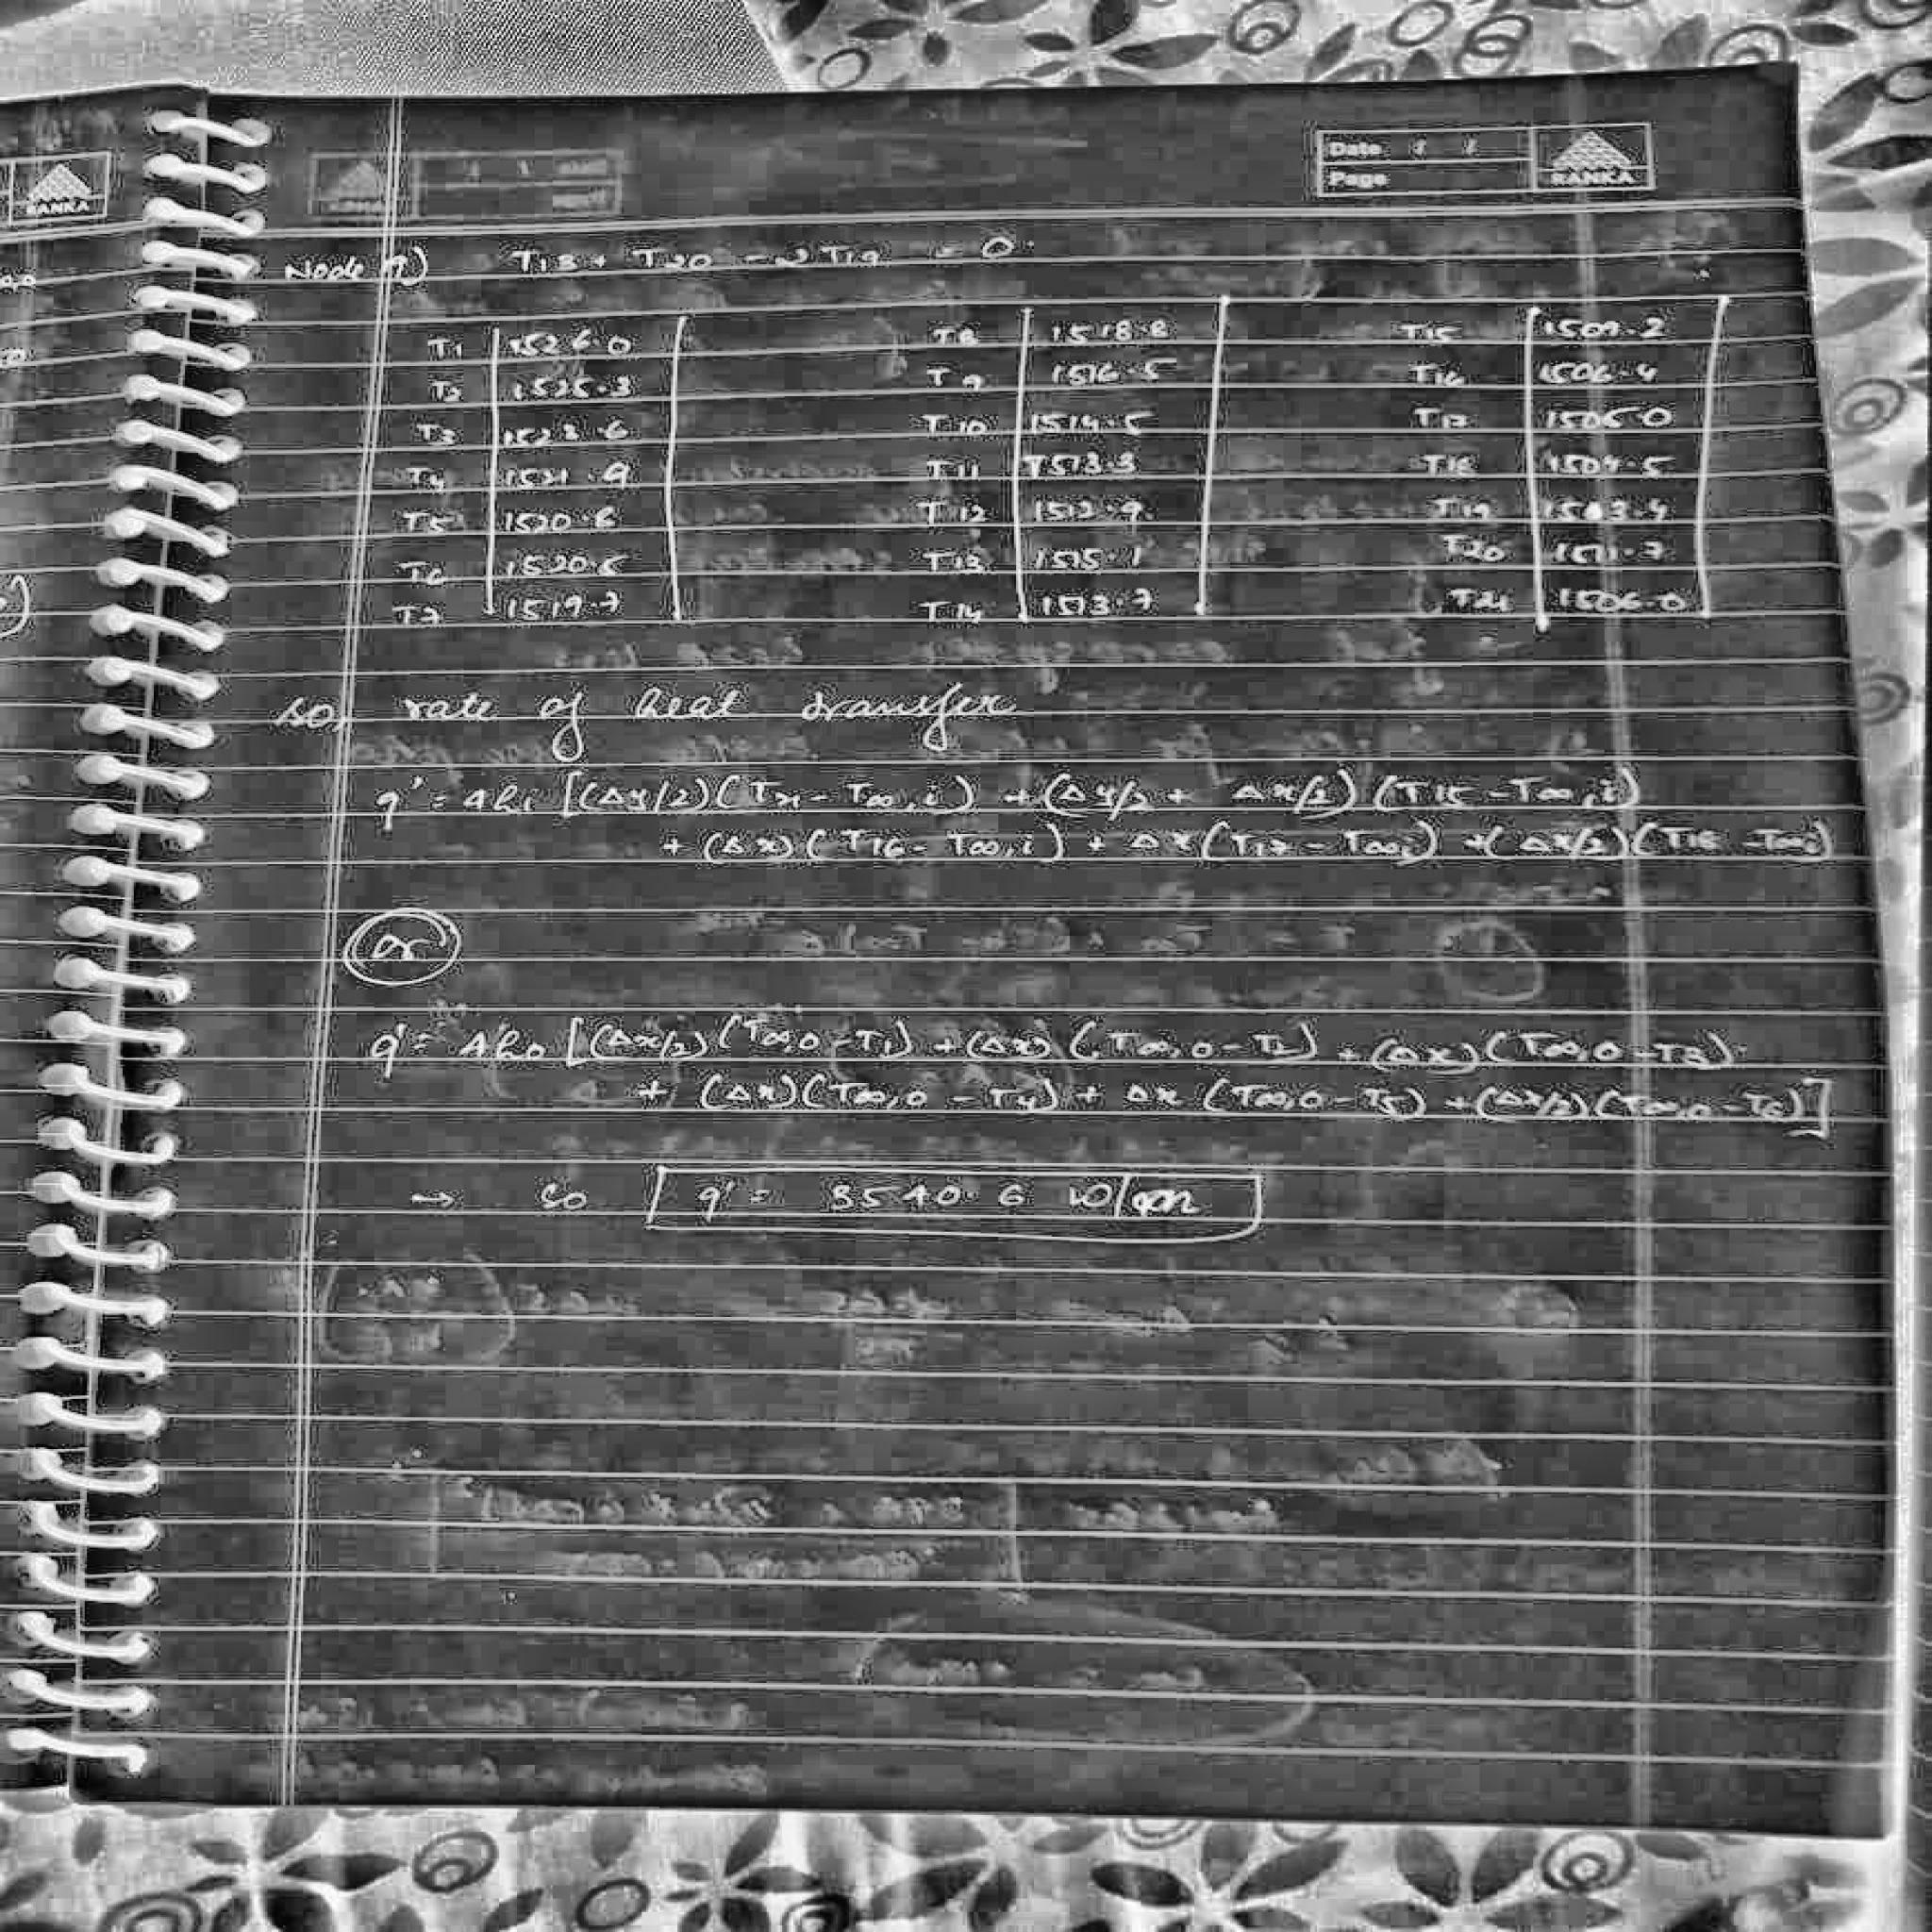 Date
Page
RANKA
RANKA
Node 19) T13 + T20 - 2T19 = 0
T1 1526.0 T8 1518.8 T15 1509.2
T2 1525.3 T9 1516.5 T16 1506.4
T3 1523.6 T10 1514.5 T17 1505.0
T4 1521.9 T11 1513.3 T18 1504.5
T5 1520.8 T12 1512.9 T19 1513.4
T6 1520.5 T13 1515.1 T20 1511.7
T7 1519.7 T14 1513.7 T21 1506.0
so, rate of heat transfer
q' = 4hi [(Δy/2)(T21 - T∞,i) + (Δy/2 + Δx/2)(T15 - T∞,i)
+ (Δx)(T16 - T∞,i) + Δx(T17 - T∞,i) + (Δx/2)(T18 - T∞,i)
or
q' = 4ho [(Δx/2)(T∞,o - T1) + (Δx)(T∞,o - T2) + (Δx)(T∞,o - T3)
+ (Δx)(T∞,o - T4) + Δx (T∞,o - T5) + (Δx/2)(T∞,o - T6)]
→ so q' = 3540.6 W/m